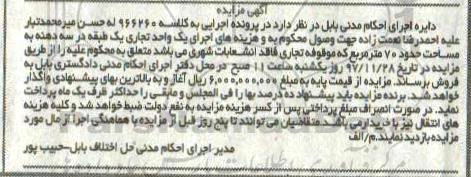 آگهی مزایده
دایره اجرای احکام مدنی بابل در نظر دارد در پرونده اجرایی به کلاسه ۹۶۶۲۶۰ له حسن میرمحمدتبار
علیه احمدرضا همت زاده جهت وصول محکوم به و هزینه های اجرای یک واحد تجاری یک طبقه در سه دهنه به
مساحت حدود ۷۰ مترمربع که موقوفه تجاری فاقد انشعابات شهری می باشد متعلق به محکوم علیه را از طریق
مزایده در تاریخ ۹۷/۱۱/۲۸ روز یکشنبه ساعت ۱۱ صبح در محل دفتر اجرای احکام مدنی دادگستری بابل به
فروش برساند. مزایده از قیمت پایه به مبلغ ۶,۰۰۰,۰۰۰,۰۰۰ ریال آغاز و به بالاترین بهای پیشنهادی واگذار
خواهد شد. برنده مزایده باید پیشنهاد ده درصد بها را فی المجلس و مابقی را حداکثر ظرف یک ماه پرداخت
نماید. در صورت انصراف مبلغ پرداختی پس از کسر هزینه مزایده به نفع دولت ضبط خواهد شد و کلیه هزینه
های انتقال نیز با خریدار می باشد. متقاضیان می توانند تا پنج روز قبل از مزایده با هماهنگی اجرا از مال مورد
مزایده بازدید نمایند. م/الف
مدیر اجرای احکام مدنی حل اختلاف بابل-حبیب پور